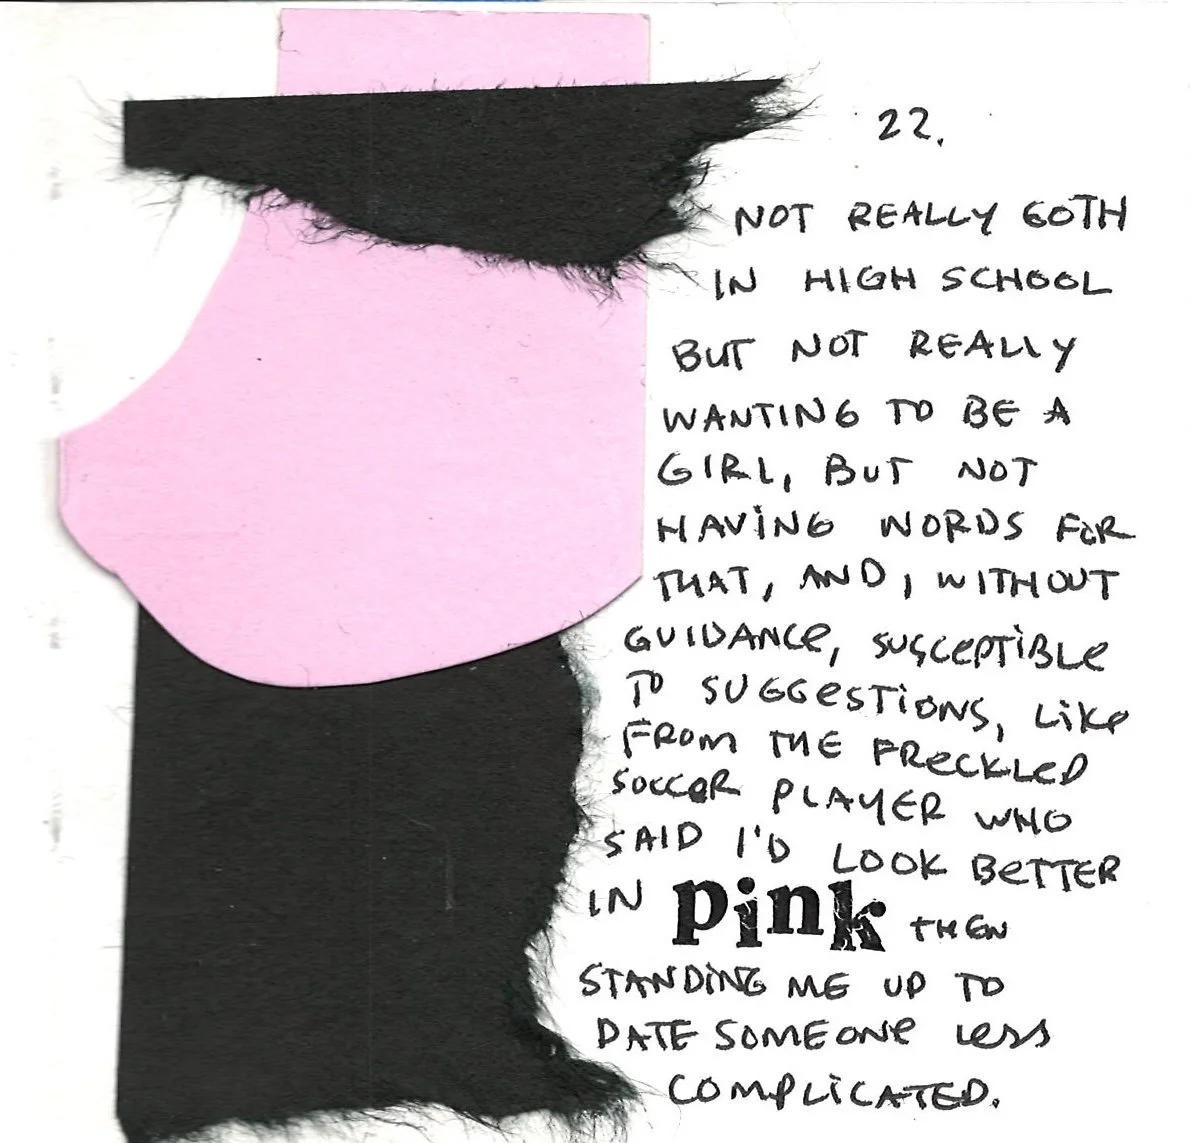 22.
NOT REALLY GOTH
IN HIGH SCHOOL
BUT NOT REALLY
WANTING TO BE A
GIRL, BUT NOT
HAVING WORDS FOR
THAT, AND, WITHOUT
GUIDANCE, SUSCEPTIBLE
TO SUGGESTIONS, LIKE
FROM THE FRECKLED
SOCCER PLAYER WHO
SAID I'D LOOK BETTER
IN pink THEN
STANDING ME UP TO
DATE SOMEONE LESS
COMPLICATED.